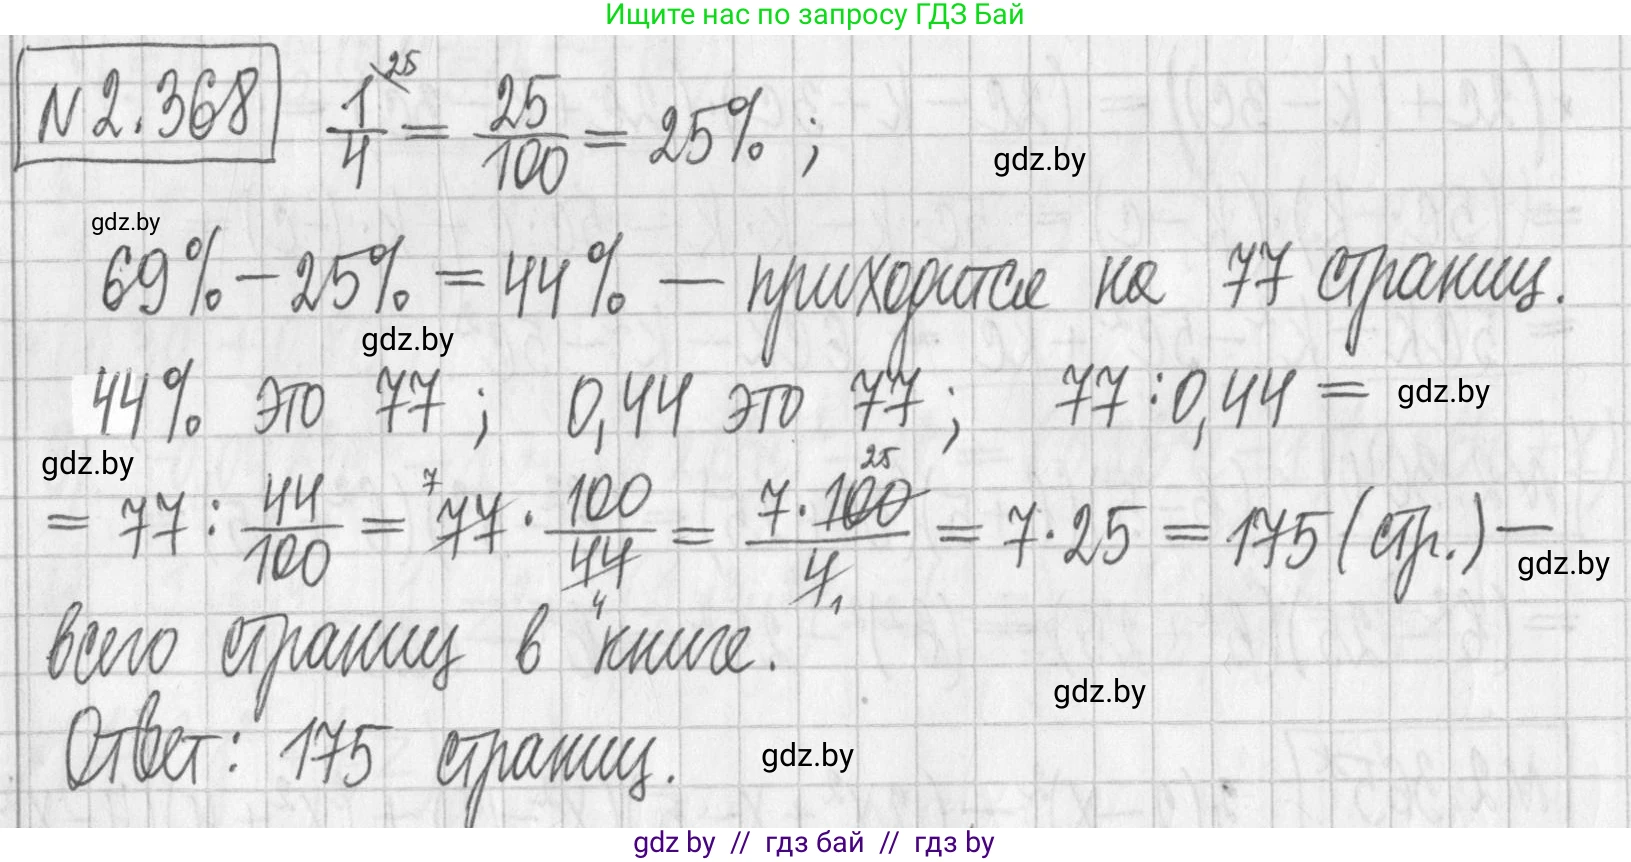 Ищите нас по запросу ГДЗ Бай
N 2.368 1/4 ²⁵ = 25/100 = 25% ; gdz.by
gdz.by
69% - 25% = 44% — приходится на 77 страниц.
gdz.by
44% это 77 ; 0,44 это 77 ; 77 : 0,44 = gdz.by
gdz.by
= 77 : 44/100 = 77 ⁷ · 100/44 ₄ = 7 · 100 ²⁵/4 ₁ = 7 · 25 = 175 (стр.) —
gdz.by
всего страниц в книге.
gdz.by
Ответ: 175 страниц. gdz.by
gdz by // гдз бай // гдз by